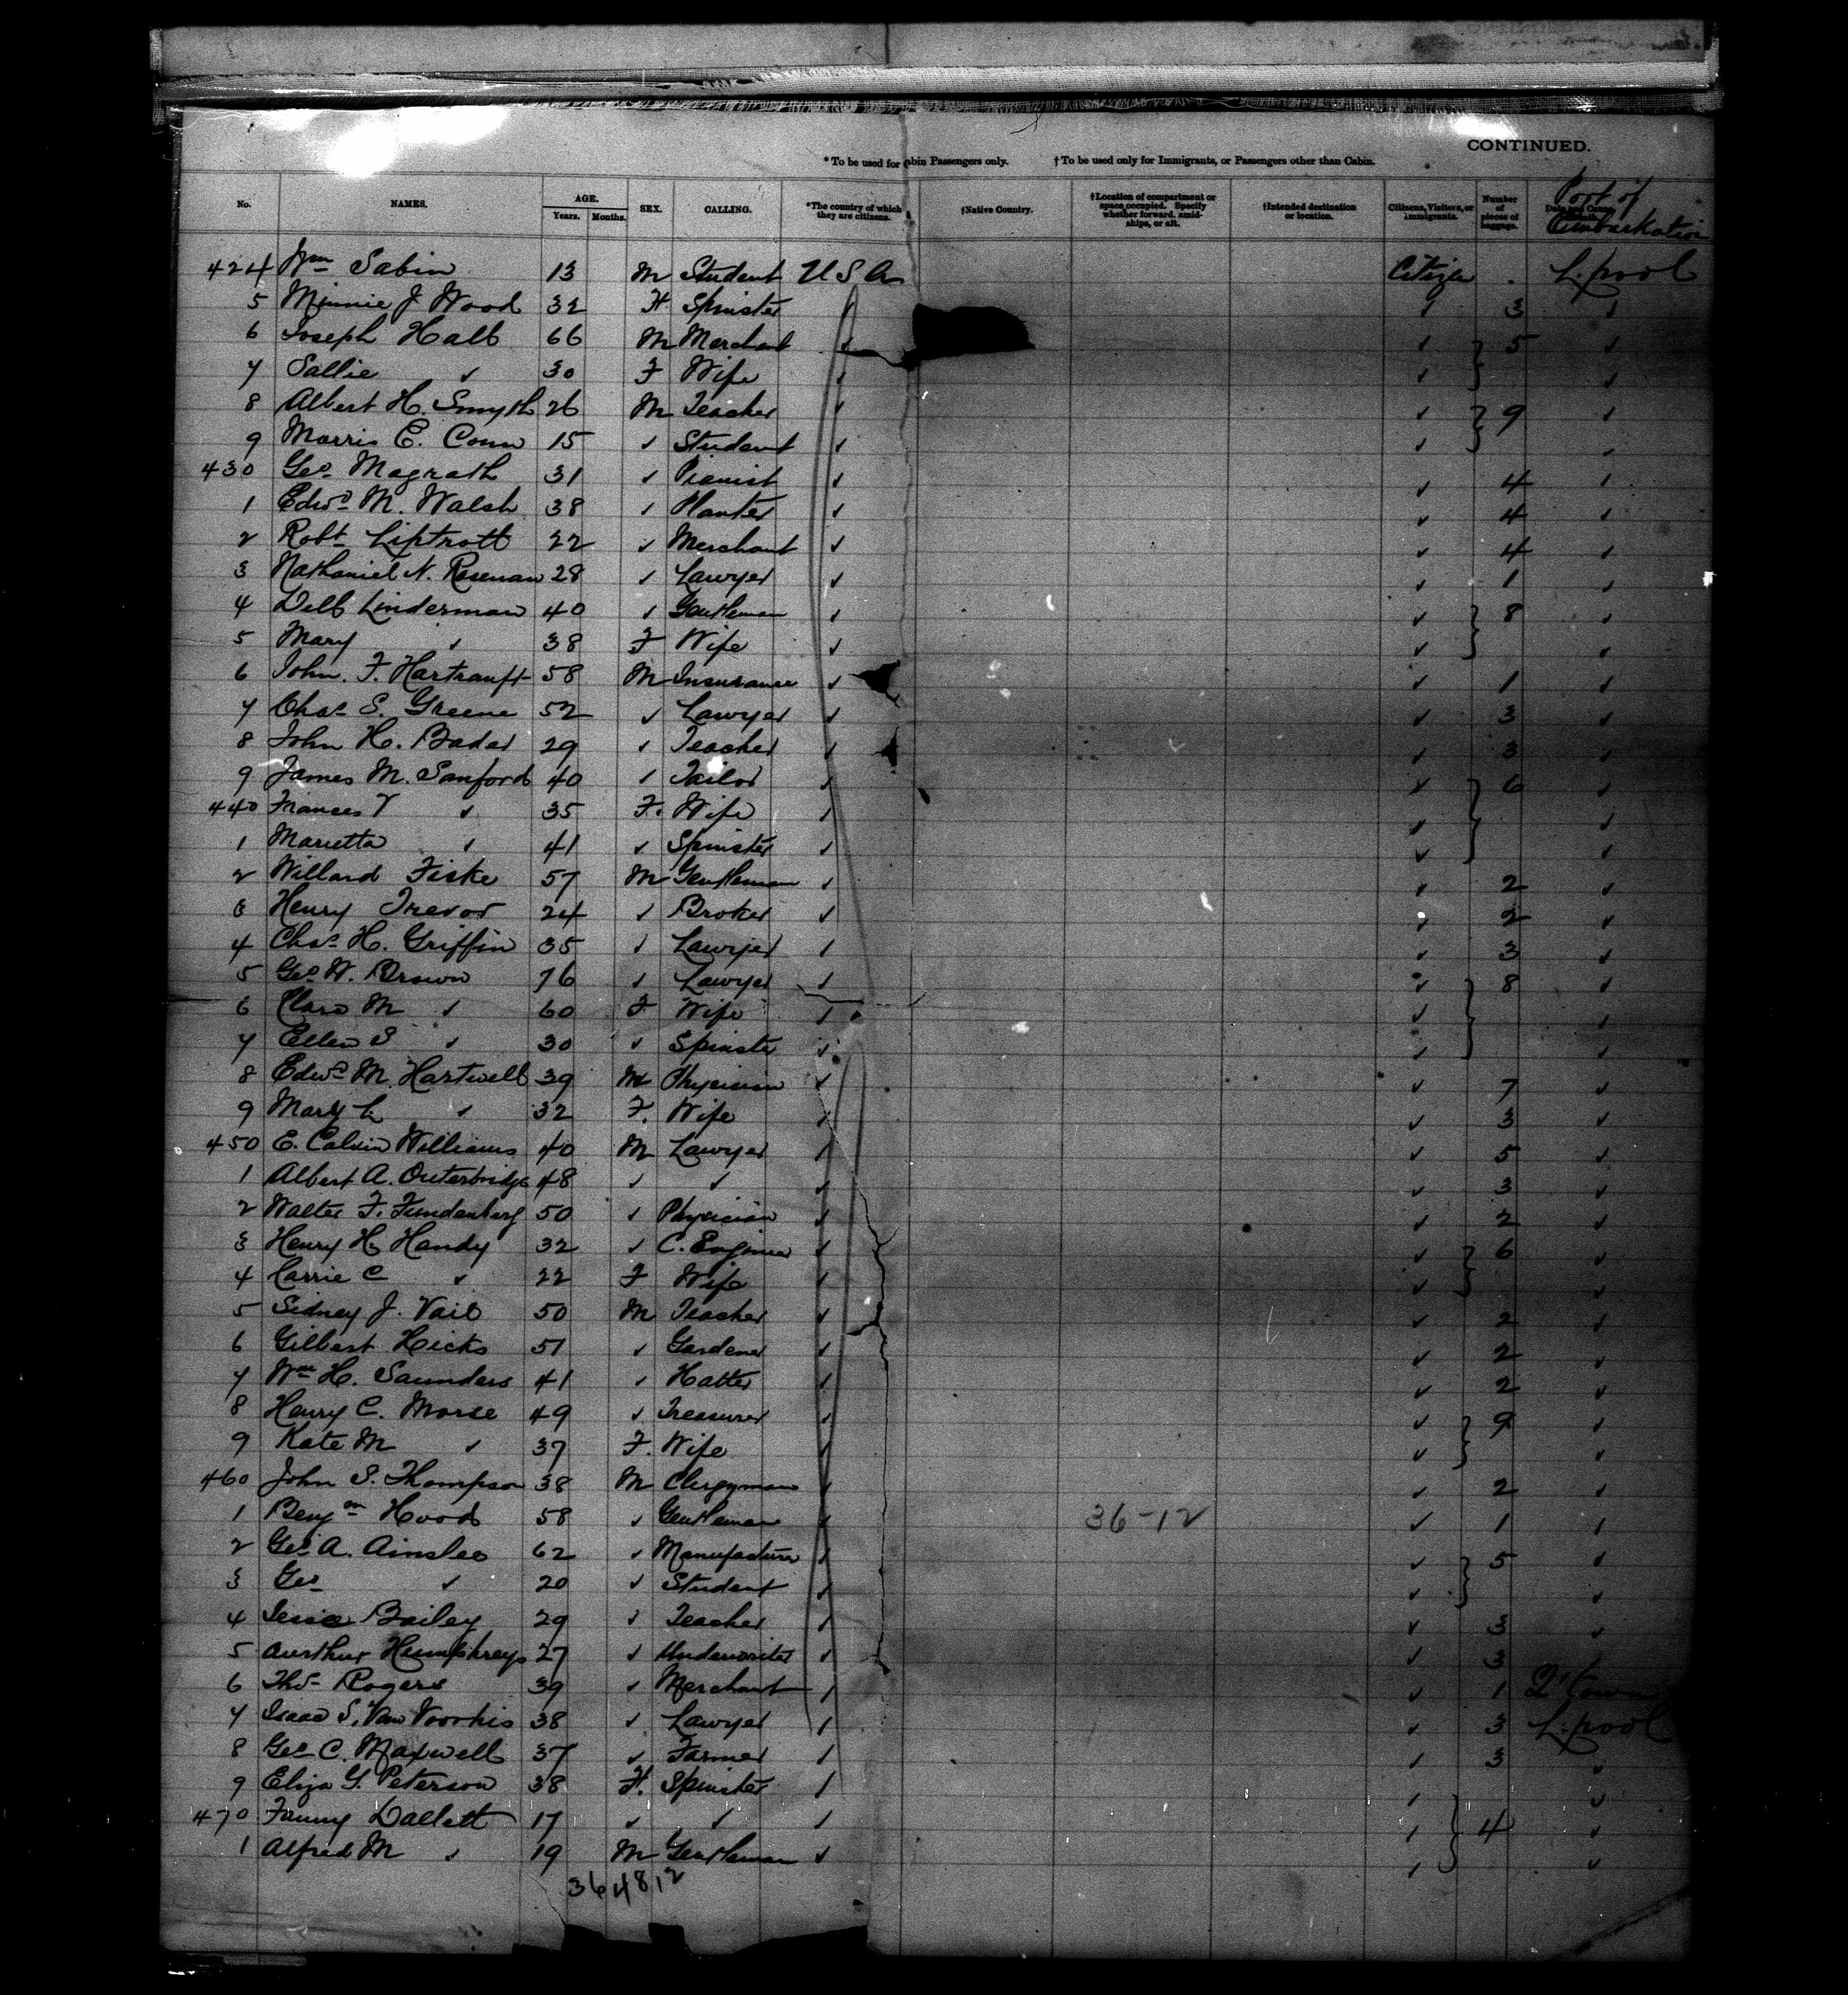 CONTINUED.
* To be used for Cabin Passengers only. † To be used only for Immigrants, or Passengers other than Cabin.
No. NAMES. AGE. Years. Months. SEX. CALLING. *The country of which they are citizens. †Native Country. †Location of compartment or space occupied. Specify whether forward, amidships, or aft. †Intended destination or location. Citizens, Visitors, or immigrants. Number of pieces of baggage. Port of Embarkation
424 Wm Sabin 13 M Student U S A Citizen . L.pool
5 Minnie J Wood 32 F Spinster ✓ ✓ 3 ✓
6 Joseph Hall 66 M Merchant ✓ ✓ } 5 ✓
7 Sallie ✓ 30 F Wife ✓ ✓ ✓
8 Albert H. Smyth 26 M Teacher ✓ ✓ } 9 ✓
9 Morris E. Conn 15 ✓ Student ✓ ✓ ✓
430 Geo Magrath 31 ✓ Pianist ✓ ✓ 4 ✓
1 Edwd M. Walsh 38 ✓ Planter ✓ ✓ 4 ✓
2 Robt Liptrott 22 ✓ Merchant ✓ ✓ 4 ✓
3 Nathaniel N. Rosenau 28 ✓ Lawyer ✓ ✓ 1 ✓
4 Linderman 40 ✓ Gentleman ✓ ✓ } 8 ✓
5 Mary ✓ 38 F Wife ✓ ✓ ✓
6 John. F. Hartranft 58 M Insurance ✓ ✓ 1 ✓
7 Chas E. Greene 52 ✓ Lawyer ✓ ✓ 3 ✓
8 John H. Bader 29 ✓ Teacher ✓ ✓ 3 ✓
9 James M. Sanford 40 ✓ Tailor ✓ ✓ } 6 ✓
440 Frances V ✓ 35 F. Wife ✓ ✓ ✓
1 Marietta ✓ 41 ✓ Spinster ✓ ✓ ✓
2 Willard Fiske 57 M Gentleman ✓ ✓ 2 ✓
3 Henry Trevor 24 ✓ Broker ✓ ✓ 2 ✓
4 Chas H. Griffin 35 ✓ Lawyer ✓ ✓ 3 ✓
5 Geo W. Brown 76 ✓ Lawyer ✓ ✓ } 8 ✓
6 Clara M ✓ 60 F Wife ✓ ✓ ✓
7 Ellen S ✓ 30 ✓ Spinster ✓ ✓ ✓
8 Edwd M. Hartwell 39 M Physician ✓ ✓ 7 ✓
9 Mary L ✓ 32 F. Wife ✓ ✓ 3 ✓
450 E. Calvin Williams 40 M Lawyer ✓ ✓ 5 ✓
1 Albert A. Outerbridge 48 ✓ ✓ ✓ ✓ 3 ✓
2 Walter F. Fundenberg 50 ✓ Physician ✓ ✓ 2 ✓
3 Henry H. Handy 32 ✓ C. Engineer ✓ ✓ } 6 ✓
4 Carrie C ✓ 22 F Wife ✓ ✓ ✓
5 Sidney J. Vail 50 M Teacher ✓ ✓ 2 ✓
6 Gilbert Hicks 51 ✓ Gardener ✓ ✓ 2 ✓
7 Wm H. Saunders 41 ✓ Hatter ✓ ✓ 2 ✓
8 Henry C. Morse 49 ✓ Treasurer ✓ ✓ } 9 ✓
9 Kate M ✓ 37 F. Wife ✓ ✓ ✓
460 John S. Thompson 38 M Clergyman ✓ ✓ 2 ✓
1 Benjm Hood 58 ✓ Gentleman ✓ 36-12 ✓ 1 ✓
2 Geo A. Ainslee 62 ✓ Manufacturer ✓ ✓ } 5 ✓
3 Geo ✓ 20 ✓ Student ✓ ✓ ✓
4 Jessie Bailey 29 ✓ Teacher ✓ ✓ 3 ✓
5 Aurthur Humphreys 27 ✓ Underwriter ✓ ✓ 3 ✓
6 Thos Rogers 39 ✓ Merchant ✓ ✓ 1 Q'town
7 Isaac S. Van Voorhis 38 ✓ Lawyer ✓ ✓ 3 L.pool
8 Geo C. Maxwell 37 ✓ Farmer ✓ ✓ 3 ✓
9 Eliza G. Peterson 38 F. Spinster ✓ ✓ } ✓
470 Fanny Dallett 17 ✓ ✓ ✓ ✓ 4 ✓
1 Alfred M ✓ 19 M Gentleman ✓ ✓ ✓
364812